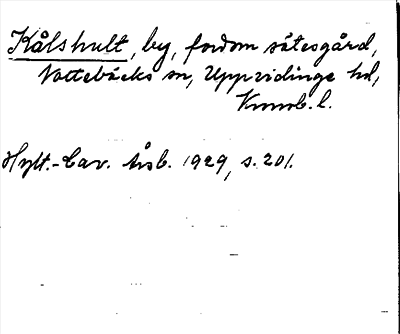 Kålshult, by, fordom sätesgård,
Nottebäcks sn, Uppvidinge hd,
Kronob. l.
Hylt.-Cav. Årsb. 1929, s. 201.